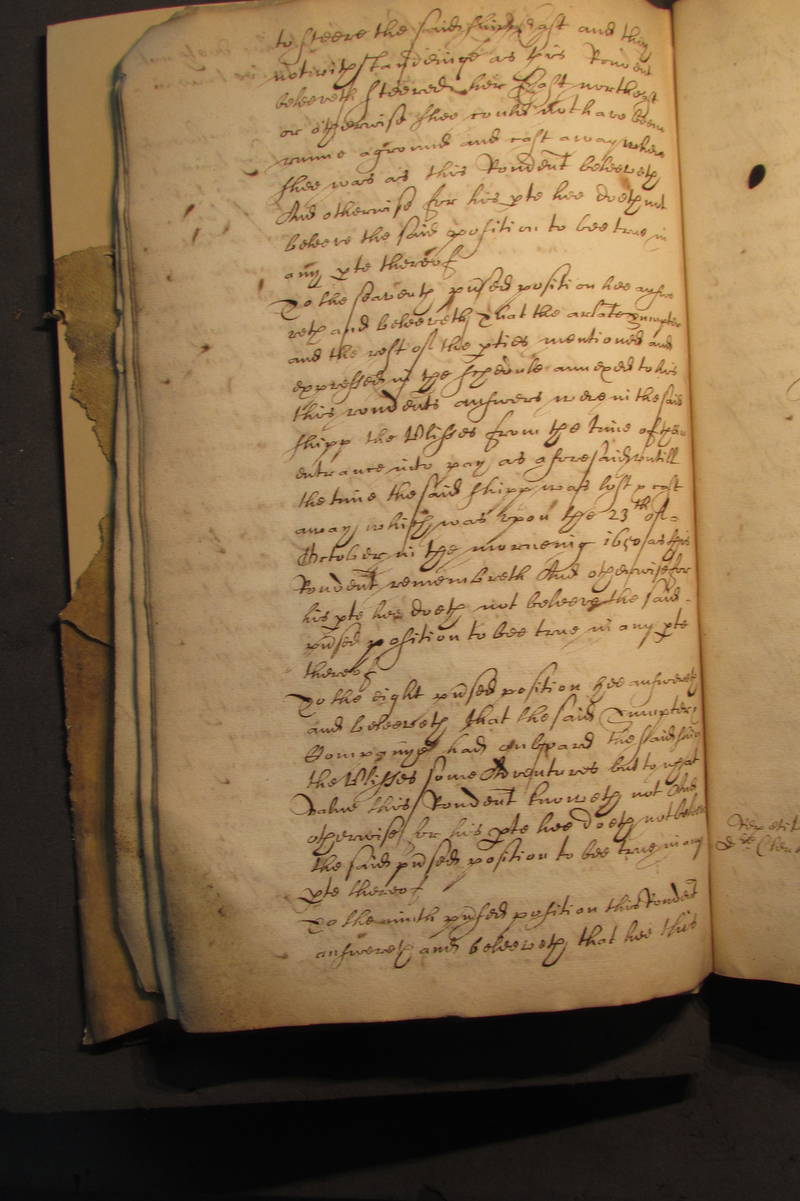 to steere the said shipp East and they
notwithstandeinge as this Rondent
beleeveth steered her East northeast
or otherwise shee could not have beene
runne aground and cast away where
shee was as this Rondent beleeveth
And otherwise for his pte hee doeth not
beleeve the said position to bee true in
any pte thereof
To the seaventh pnsed position hee answe
reth and beleeveth That the arlate
and the rest of the pties mentioned and
expressed in the schedule annexed to his
this rondents answers were in the said
shipp the Ulisses from the time of their
entrance into pay as aforesaid untill
the time the said shipp was lost & cast
away which was upon the 23th of
October in the morneing 1650 as this
Rondent remembreth And otherwise for
his pte hee doeth not beleeve the said
pnsed position to bee true in any pte
thereof
To the eight pnsed position hee answereth
and beleeveth that the said
Company had on board the said shipp
the Ulisses some Adventures but to what
value this Rondent knoweth not And
otherwise for his pte hee doeth not beleeve
the said pnsed position to bee true in any
pte thereof
To the ninth pnsed position this Rondent
answereth and beleeveth that hee this